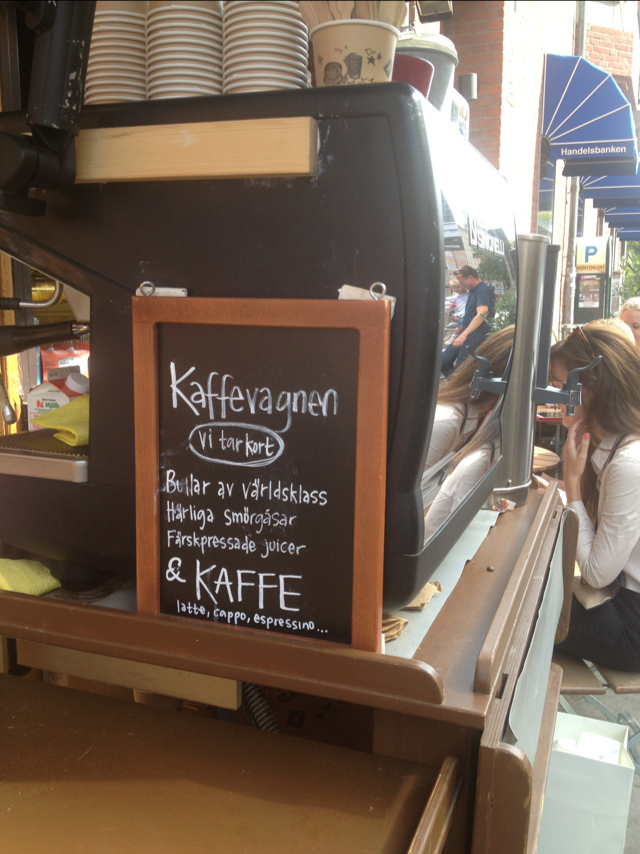 Handelsbanken
P
Kaffevagnen
vi tar kort
Bullar av världsklass
Härliga smörgåsar
Färskpressade juicer
& KAFFE
latte, cappo, espressino...